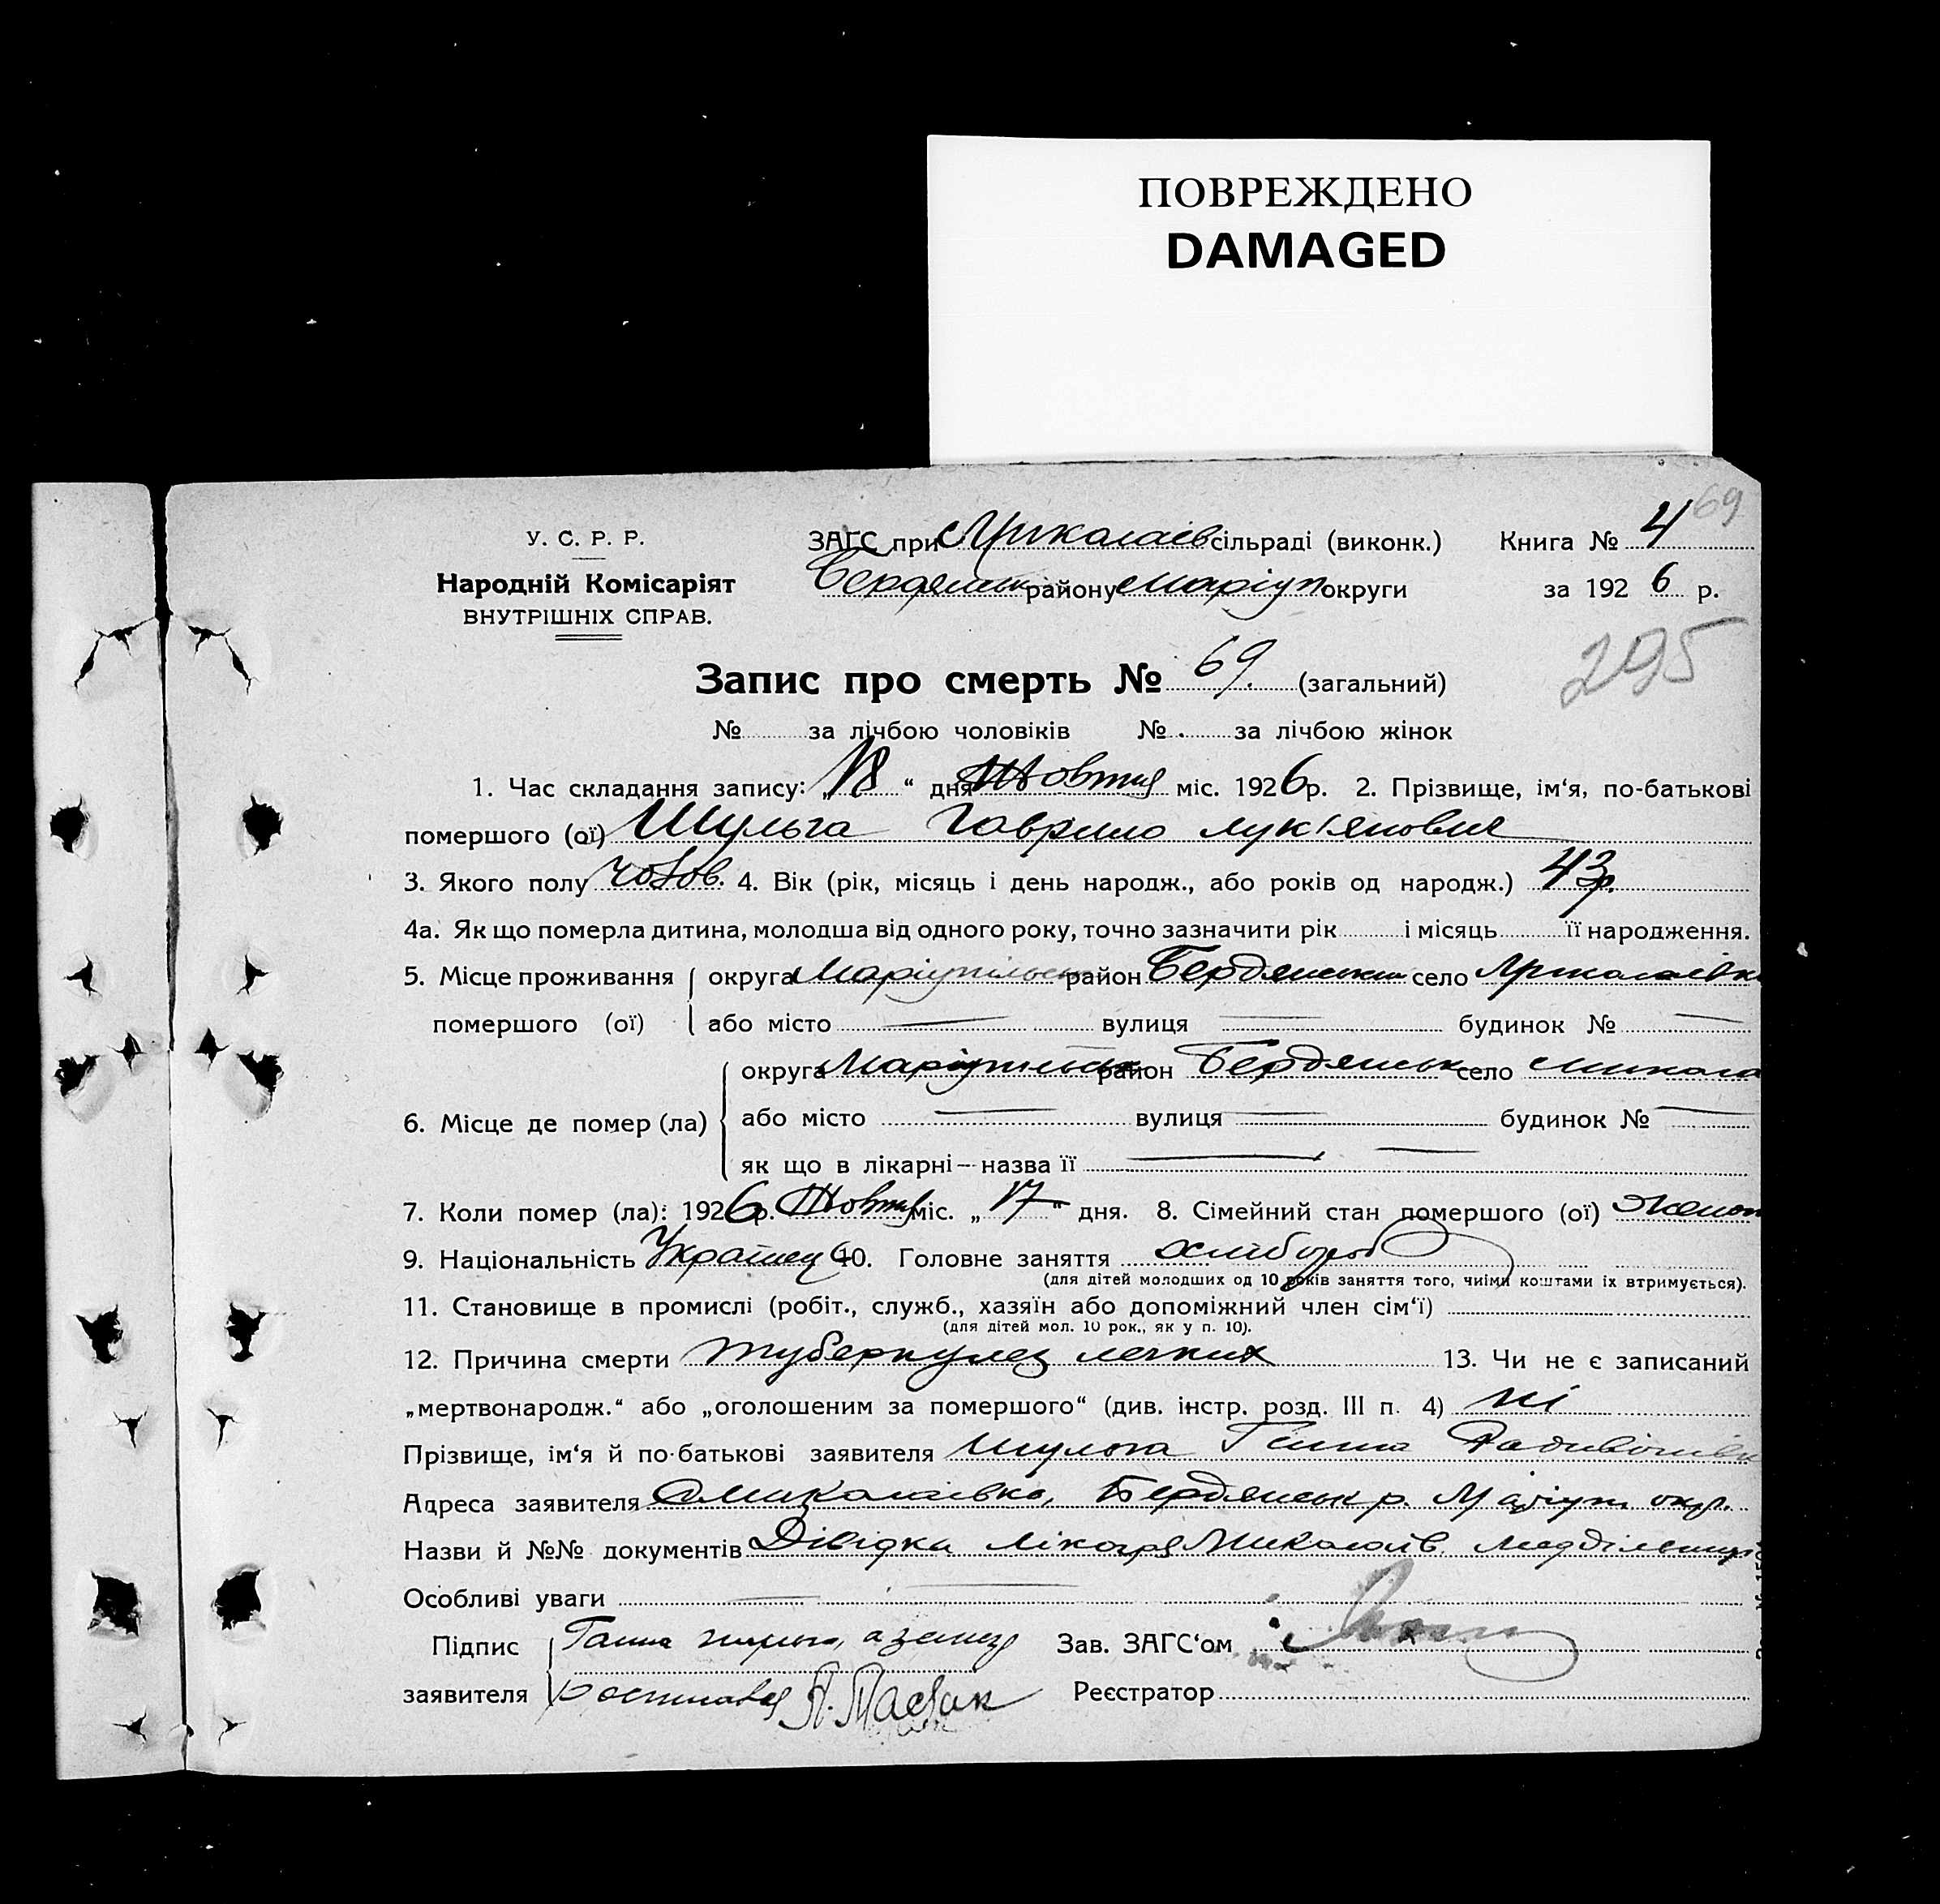 ПОВРЕЖДЕНО
DAMAGED
69
У. С. Р. Р. ЗАГС при Миколаїв сільраді (виконк.) Книга № 4
Народній Комісаріят Бердянськ району Маріуп округи за 1926 р.
ВНУТРІШНІХ СПРАВ.
295
Запис про смерть № 69. (загальний)
№ за лічбою чоловіків № за лічбою жінок
1. Час складання запису: „18“ дня Жовтня міс. 1926 р. 2. Прізвище, ім‘я, по-батькові
помершого (ої) Шульга Гаврило Лук‘янович
3. Якого полу чолов. 4. Вік (рік, місяць і день народж., або років од народж.) 43 р.
4а. Як що померла дитина, молодша від одного року, точно зазначити рік і місяць її народження.
5. Місце проживання округа Маріупільськ район Бердянськ село Миколаївк
помершого (ої) або місто — вулиця — будинок № —
округа Маріупільськ район Бердянськ село Микола
6. Місце де помер (ла) або місто — вулиця — будинок № —
як що в лікарні — назва її —
7. Коли помер (ла): 1926 р. Жовтня міс. „17“ дня. 8. Сімейний стан помершого (ої) Жонат
9. Національність Українец 10. Головне заняття хлібороб
(для дітей молодших од 10 років заняття того, чиїми коштами їх втримується).
11. Становище в промислі (робіт., служб., хазяїн або допоміжний член сім‘ї)
(для дітей мол. 10 рок., як у п. 10).
12. Причина смерти туберкулез легких 13. Чи не є записаний
„мертвонародж.“ або „оголошеним за помершого“ (див. інстр. розд. III п. 4) ні
Прізвище, ім‘я й по-батькові заявителя Шульга Ганна
Адреса заявителя с Миколаївка, Бердянськ р. Маріуп. окр.
Назви й №№ документів Довідка лікаря Миколаїв.
Особливі уваги —
Підпис Ганна Шульга, а за неї Зав. ЗАГС‘ом
заявителя Реєстратор